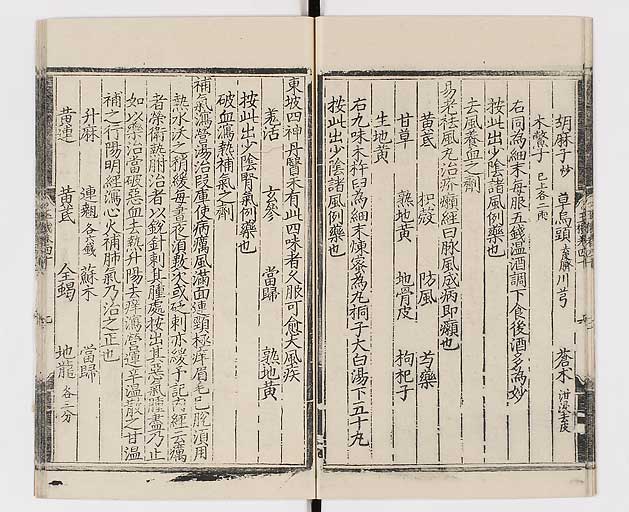 胡麻子炒 草烏頭 川芎 蒼朮
木鱉子已上各二兩
右同為細末每服五錢溫酒調下食後酒多為妙
按此出少陰諸風例藥也
去風養血之劑
易老祛風丸治疥癩經曰脉風成病即癩也
黃芪 枳殼 防風 芍藥
甘草 熟地黃 地骨皮 枸杞子
生地黃
右九味木杵臼為細末煉蜜為丸梧子大白湯下五十丸
按此出少陰諸風例藥也
東坡四神丹醫未有此四味者久服可愈大風疾
羗活 玄參 當歸 熟地黃
按此出少陰腎氣例藥也
破血瀉熱補氣之劑
補氣瀉營湯治段庫使病癘風滿面連頸極痒眉毛已脫須用
熱水沃之稍緩每晝夜須數次或砭刺亦緩予記內經云癘
者滎衛熱胕治者以銳針刺其腫處按出其惡氣腫盡乃止
如以藥治當破惡血去熱升陽去痒瀉營運辛溫散之甘溫
補之行陽明經瀉心火補肺氣乃治之正也
升麻 連翹各六錢 蘇木 當歸
黃連 黃芪 全蝎 地龍各三分